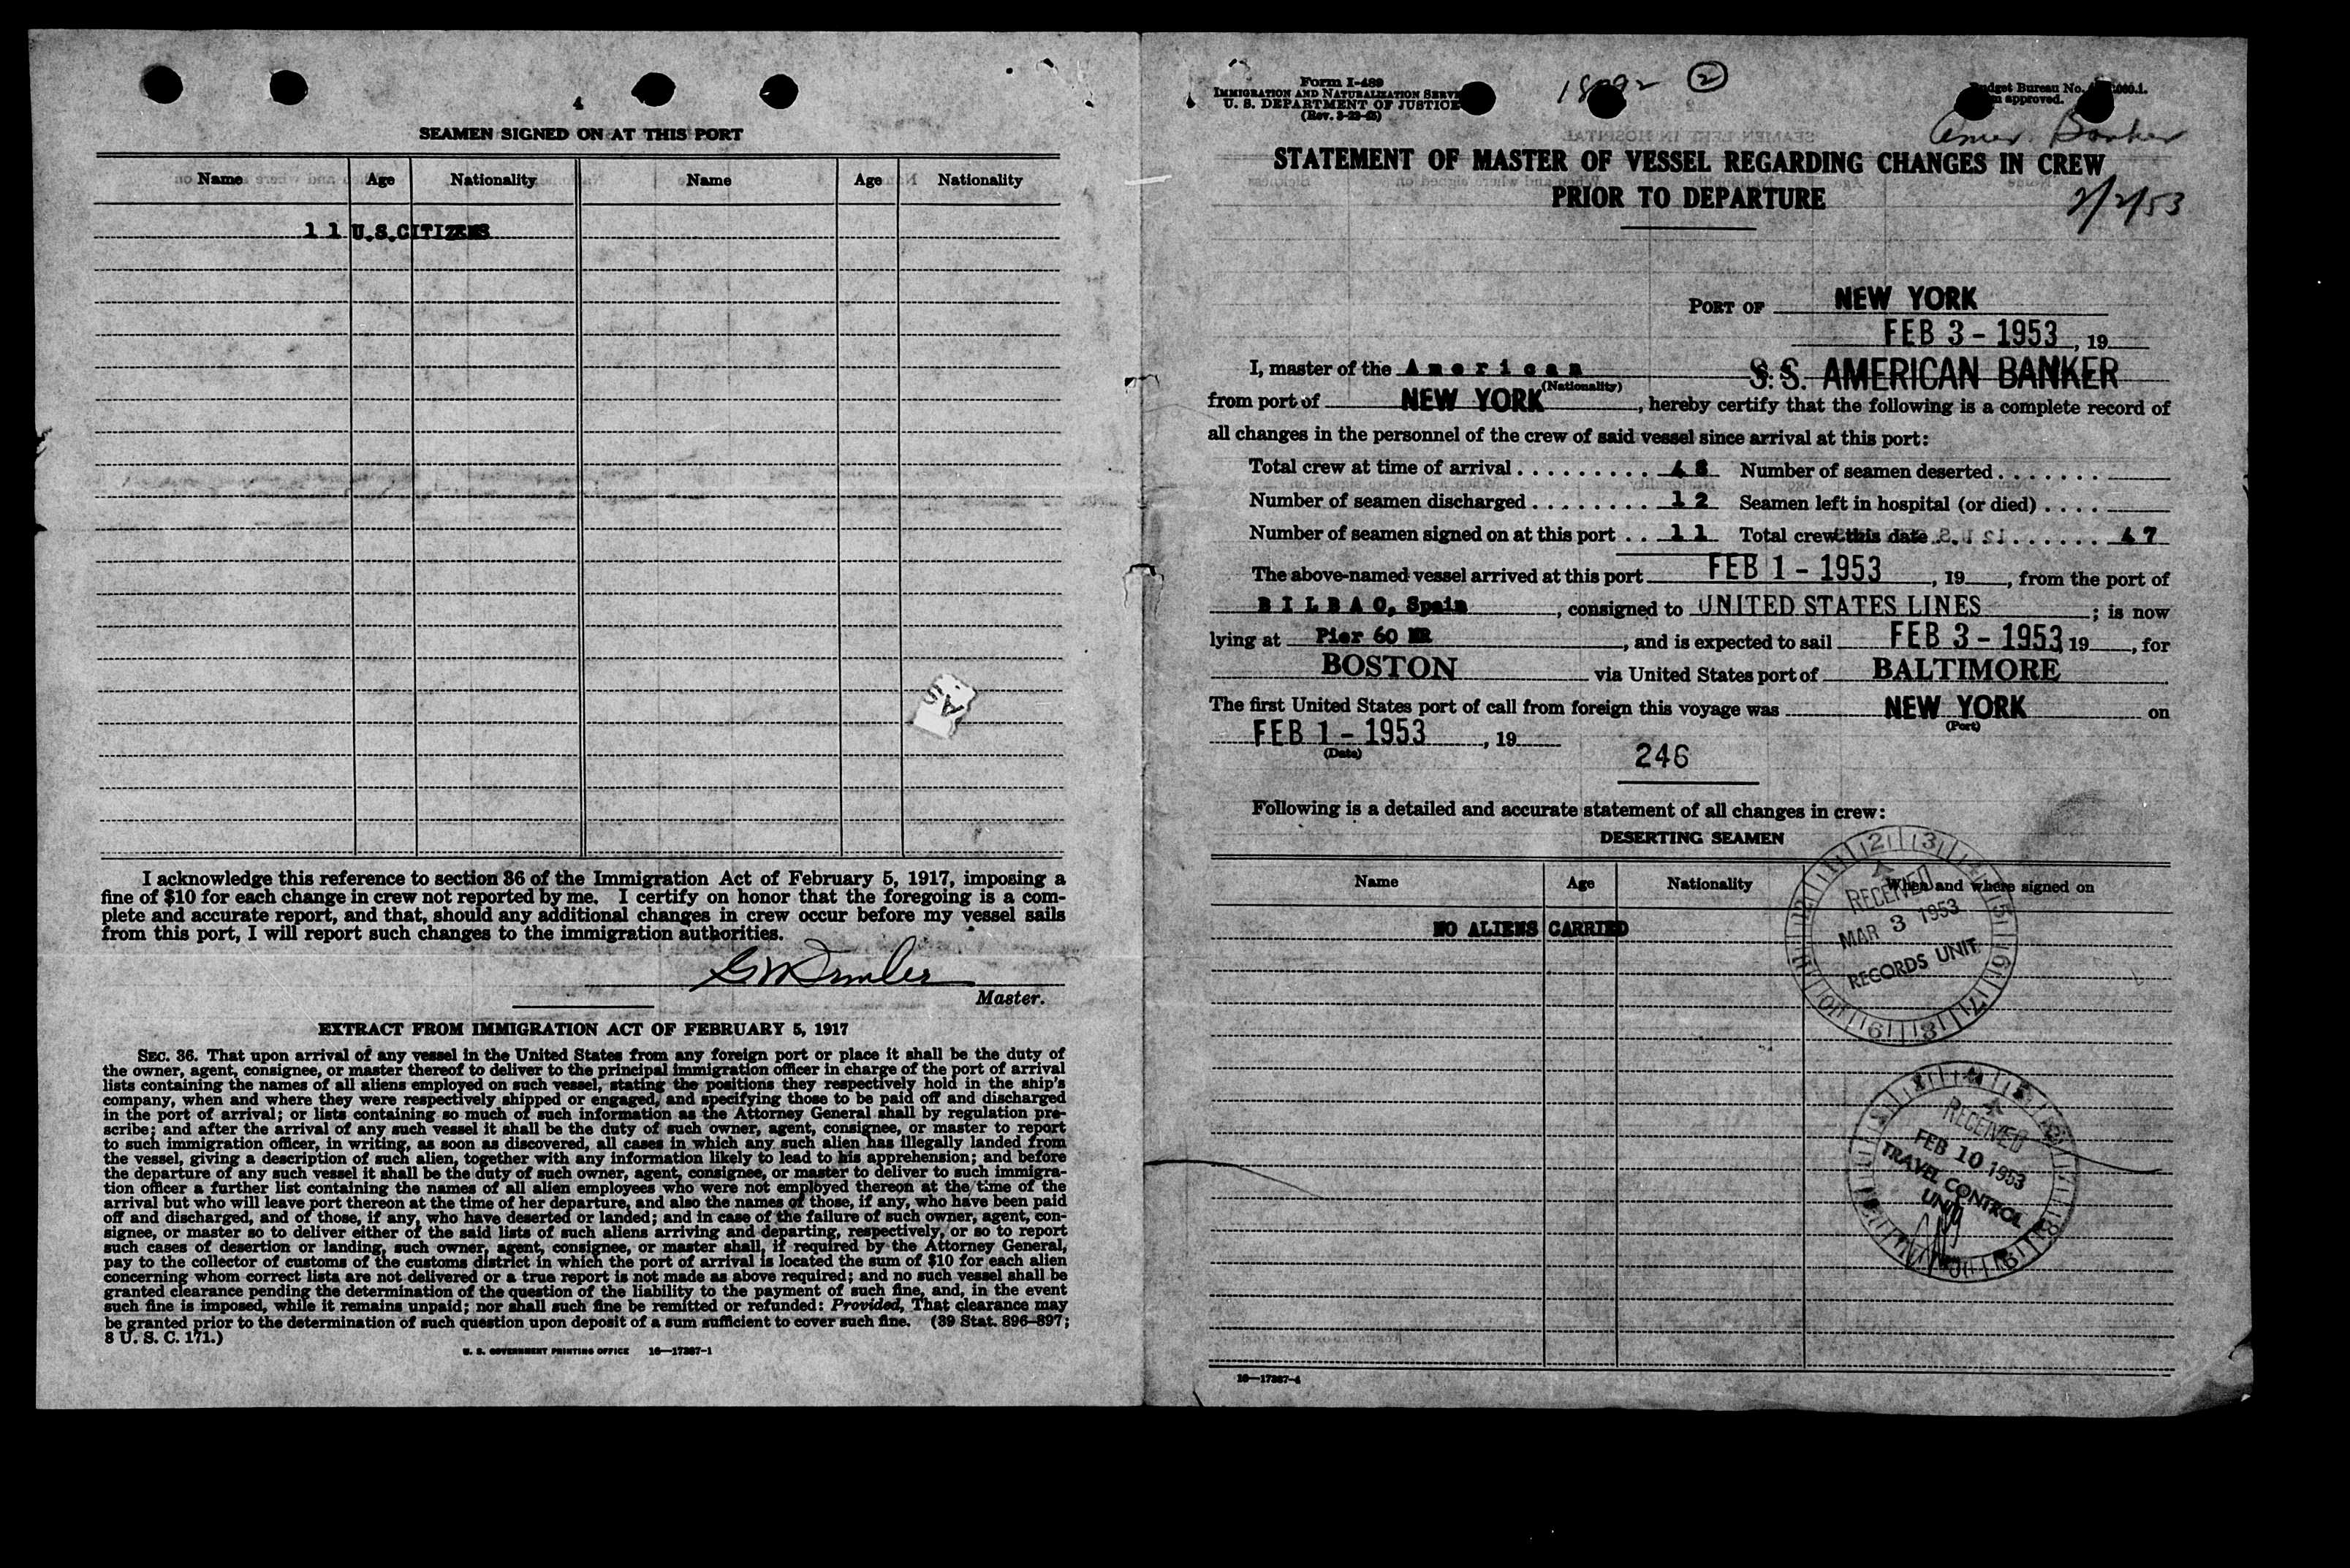 4
SEAMEN SIGNED ON AT THIS PORT
Name Age Nationality Name Age Nationality
11 U.S.CITIZENS
I acknowledge this reference to section 36 of the Immigration Act of February 5, 1917, imposing a
fine of $10 for each change in crew not reported by me. I certify on honor that the foregoing is a com-
plete and accurate report, and that, should any additional changes in crew occur before my vessel sails
from this port, I will report such changes to the immigration authorities.
Master.
EXTRACT FROM IMMIGRATION ACT OF FEBRUARY 5, 1917
SEC. 36. That upon arrival of any vessel in the United States from any foreign port or place it shall be the duty of
the owner, agent, consignee, or master thereof to deliver to the principal immigration officer in charge of the port of arrival
lists containing the names of all aliens employed on such vessel, stating the positions they respectively hold in the ship's
company, when and where they were respectively shipped or engaged, and specifying those to be paid off and discharged
in the port of arrival; or lists containing so much of such information as the Attorney General shall by regulation pre-
scribe; and after the arrival of any such vessel it shall be the duty of such owner, agent, consignee, or master to report
to such immigration officer, in writing, as soon as discovered, all cases in which any such alien has illegally landed from
the vessel, giving a description of such alien, together with any information likely to lead to his apprehension; and before
the departure of any such vessel it shall be the duty of such owner, agent, consignee, or master to deliver to such immigra-
tion officer a further list containing the names of all alien employees who were not employed thereon at the time of the
arrival but who will leave port thereon at the time of her departure, and also the names of those, if any, who have been paid
off and discharged, and of those, if any, who have deserted or landed; and in case of the failure of such owner, agent, con-
signee, or master so to deliver either of the said lists of such aliens arriving and departing, respectively, or so to report
such cases of desertion or landing, such owner, agent, consignee, or master shall, if required by the Attorney General,
pay to the collector of customs of the customs district in which the port of arrival is located the sum of $10 for each alien
concerning whom correct lists are not delivered or a true report is not made as above required; and no such vessel shall be
granted clearance pending the determination of the question of the liability to the payment of such fine, and, in the event
such fine is imposed, while it remains unpaid; nor shall such fine be remitted or refunded: Provided, That clearance may
be granted prior to the determination of such question upon deposit of a sum sufficient to cover such fine. (39 Stat. 896-897;
8 U. S. C. 171.)
U. S. GOVERNMENT PRINTING OFFICE 16—17387-1
Form I-489
IMMIGRATION AND NATURALIZATION
U. S. DEPARTMENT OF JUSTICE
2
Budget Bureau No.
approved.
Amer. Banker
STATEMENT OF MASTER OF VESSEL REGARDING CHANGES IN CREW
PRIOR TO DEPARTURE
2/2/53
PORT OF NEW YORK
FEB 3 - 1953, 19
I, master of the American S. S. AMERICAN BANKER
(Nationality)
from port of NEW YORK, hereby certify that the following is a complete record of
all changes in the personnel of the crew of said vessel since arrival at this port:
Total crew at time of arrival 48 Number of seamen deserted
Number of seamen discharged 12 Seamen left in hospital (or died)
Number of seamen signed on at this port 11 Total crew this date 47
The above-named vessel arrived at this port FEB 1 - 1953, 19, from the port of
BILBAO, Spain, consigned to UNITED STATES LINES; is now
lying at Pier 60 NR, and is expected to sail FEB 3 - 1953, 19, for
BOSTON via United States port of BALTIMORE
The first United States port of call from foreign this voyage was NEW YORK on
(Port)
FEB 1 - 1953, 19
(Date)
246
Following is a detailed and accurate statement of all changes in crew:
DESERTING SEAMEN
Name Age Nationality When and where signed on
NO ALIENS CARRIED
RECEIVED
MAR 3 1953
RECORDS UNIT
RECEIVED
FEB 10 1953
TRAVEL CONTROL
UNIT
16—17387-4